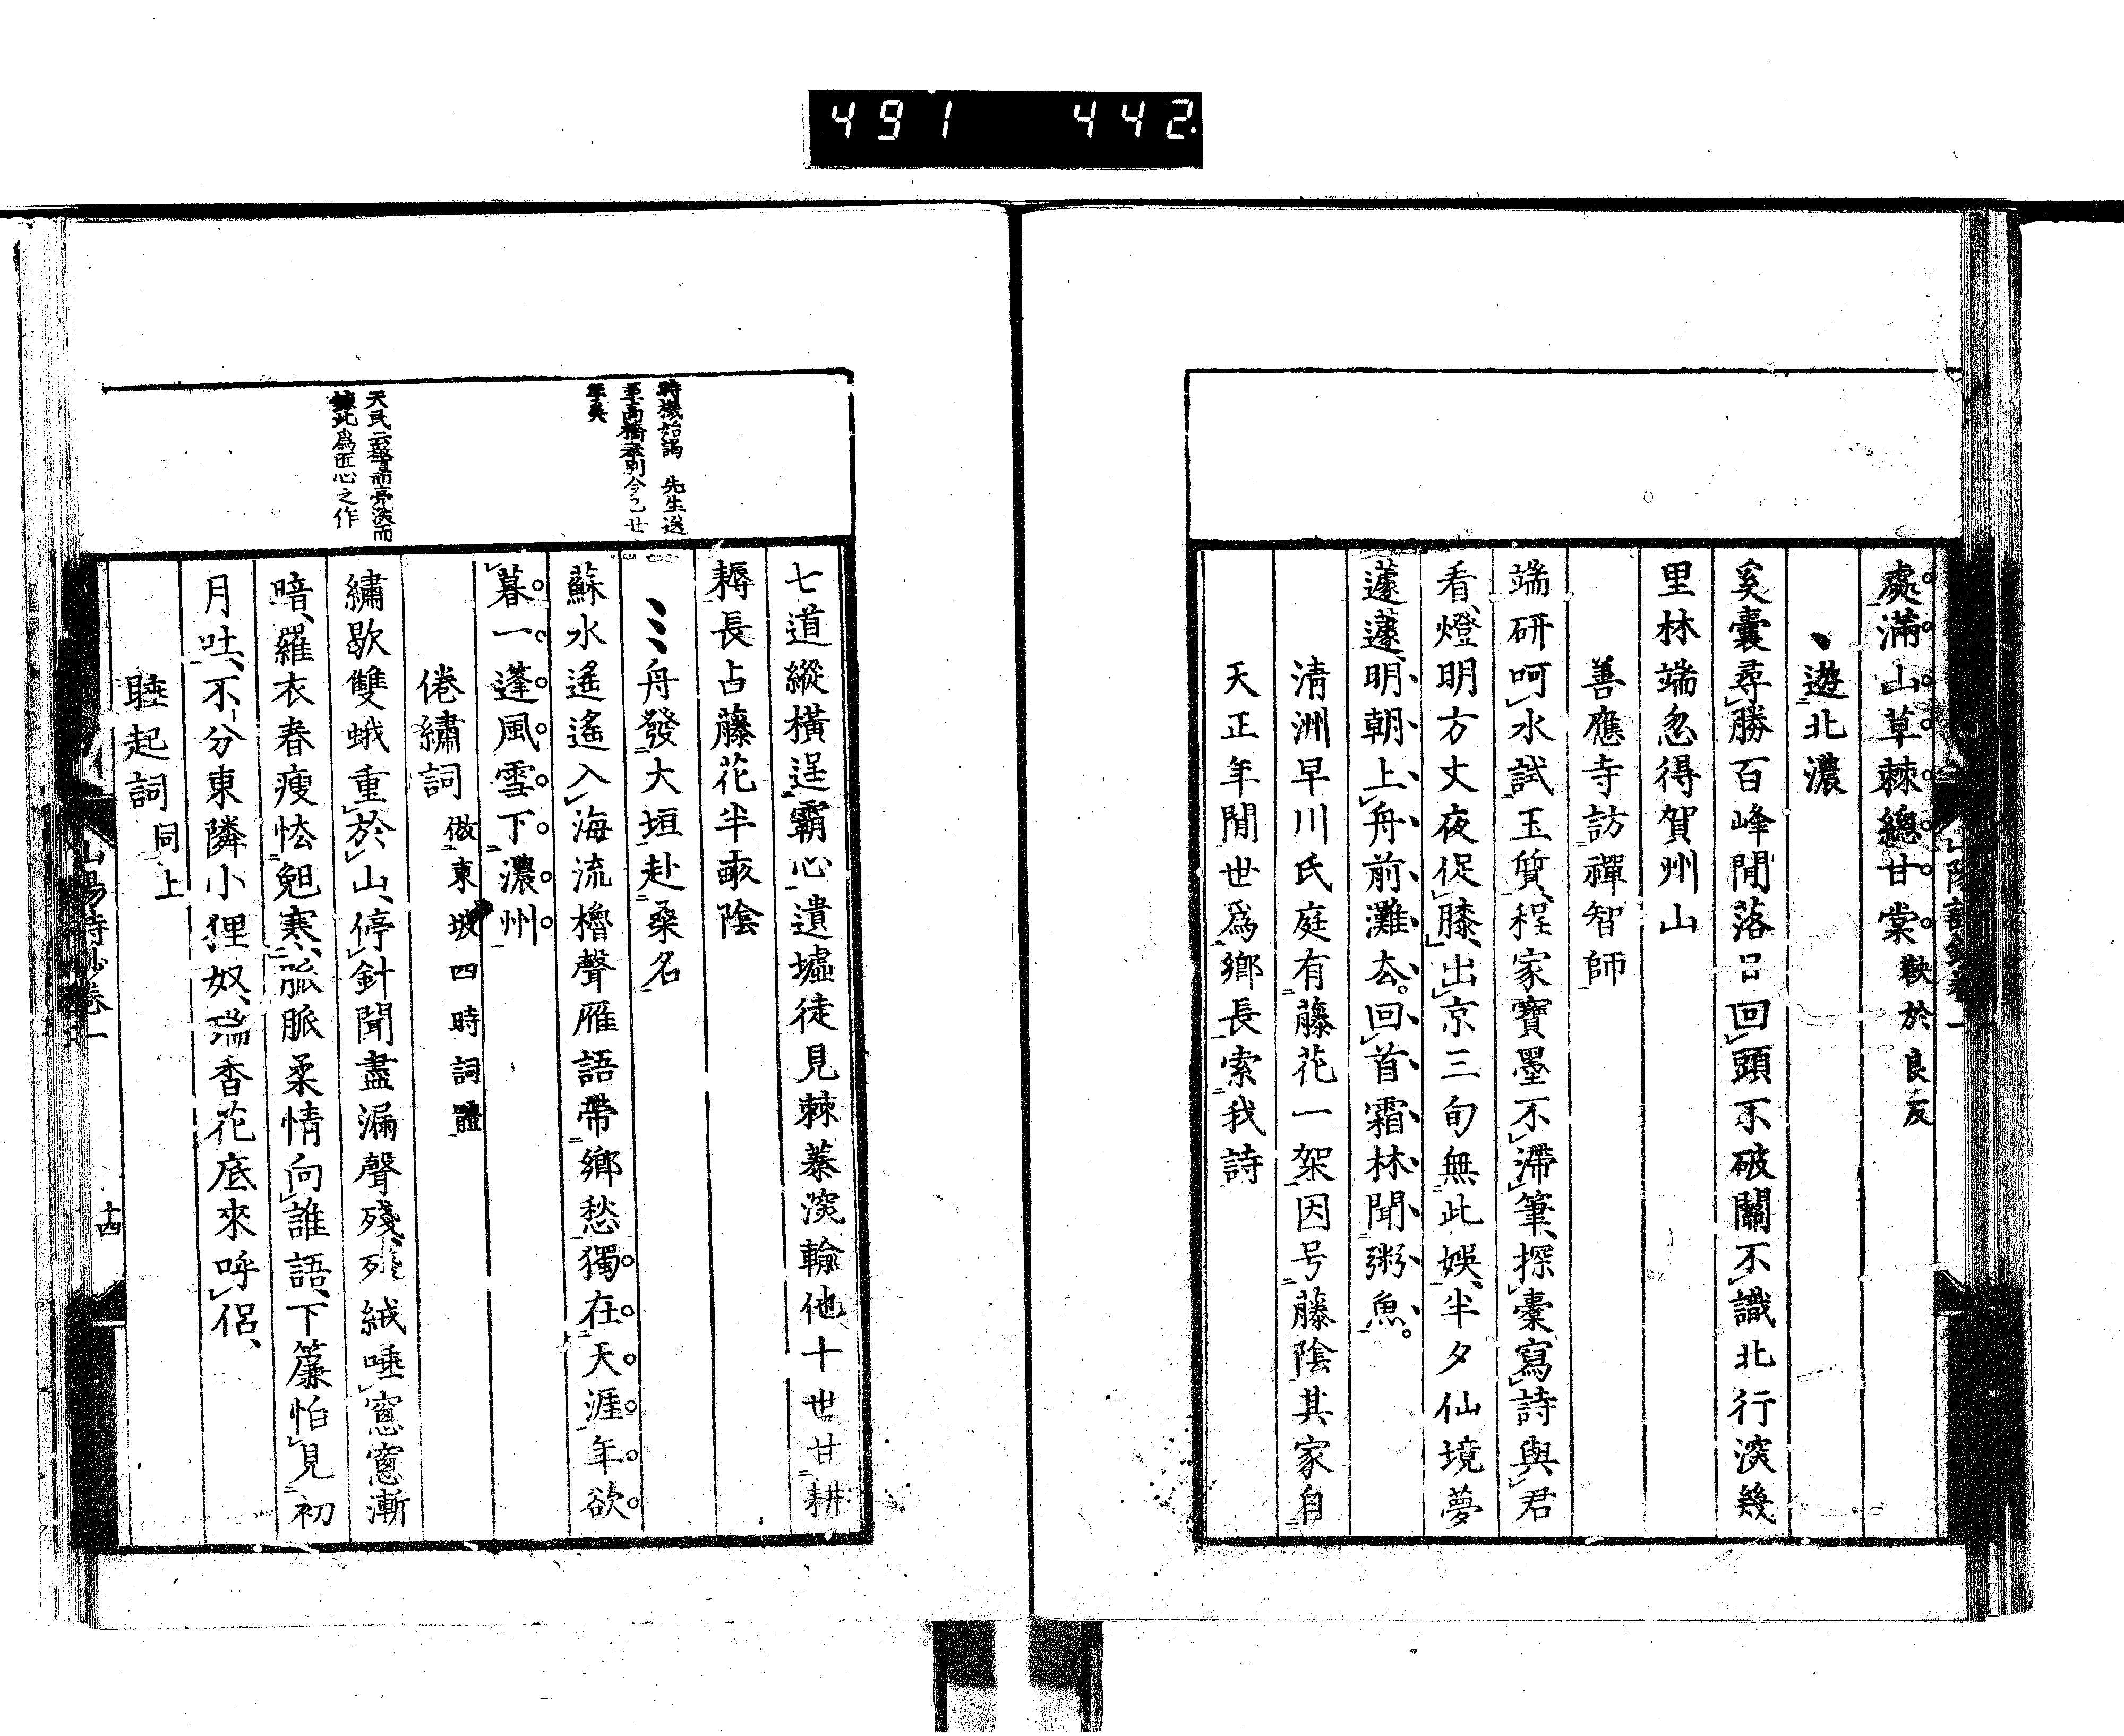 491 442
處滿山草棘總甘棠 鞅於良反
遊北濃
奚囊尋勝百峰間落日回頭不破關不識北行深幾
里林端忽得賀州山
善應寺訪禪智師
端研呵水試玉質程家寶墨不滯筆探囊寫詩與君
看燈明方丈夜促膝出京三旬無此娛半夕仙境夢
蘧蘧明朝上舟前灘去回首霜林聞粥魚
清洲早川氏庭有藤花一架因号藤陰其家自
天正年間世爲鄉長索我詩
時機始謁 先生送
至高橋奉別今已廿
年矣
天民云
此爲匠心之作
七道縱橫逞霸心遺墟徒見棘蓁深輸他十世甘耕
耨長占藤花半畝陰
舟發大垣赴桑名
蘇水遙遙入海流櫓聲雁語帶鄉愁獨在天涯年欲
暮一篷風雪下濃州
倦繡詞 倣東坡四時詞體
繡歇雙蛾重於山停針聞盡漏聲殘殘絨唾窗窗漸
暗羅衣春瘦怯兜寒脈脈柔情向誰語下簾怕見初
月吐不分東隣小狸奴瑞香花底來呼侶
睡起詞 同上
山陽詩鈔卷一
十四